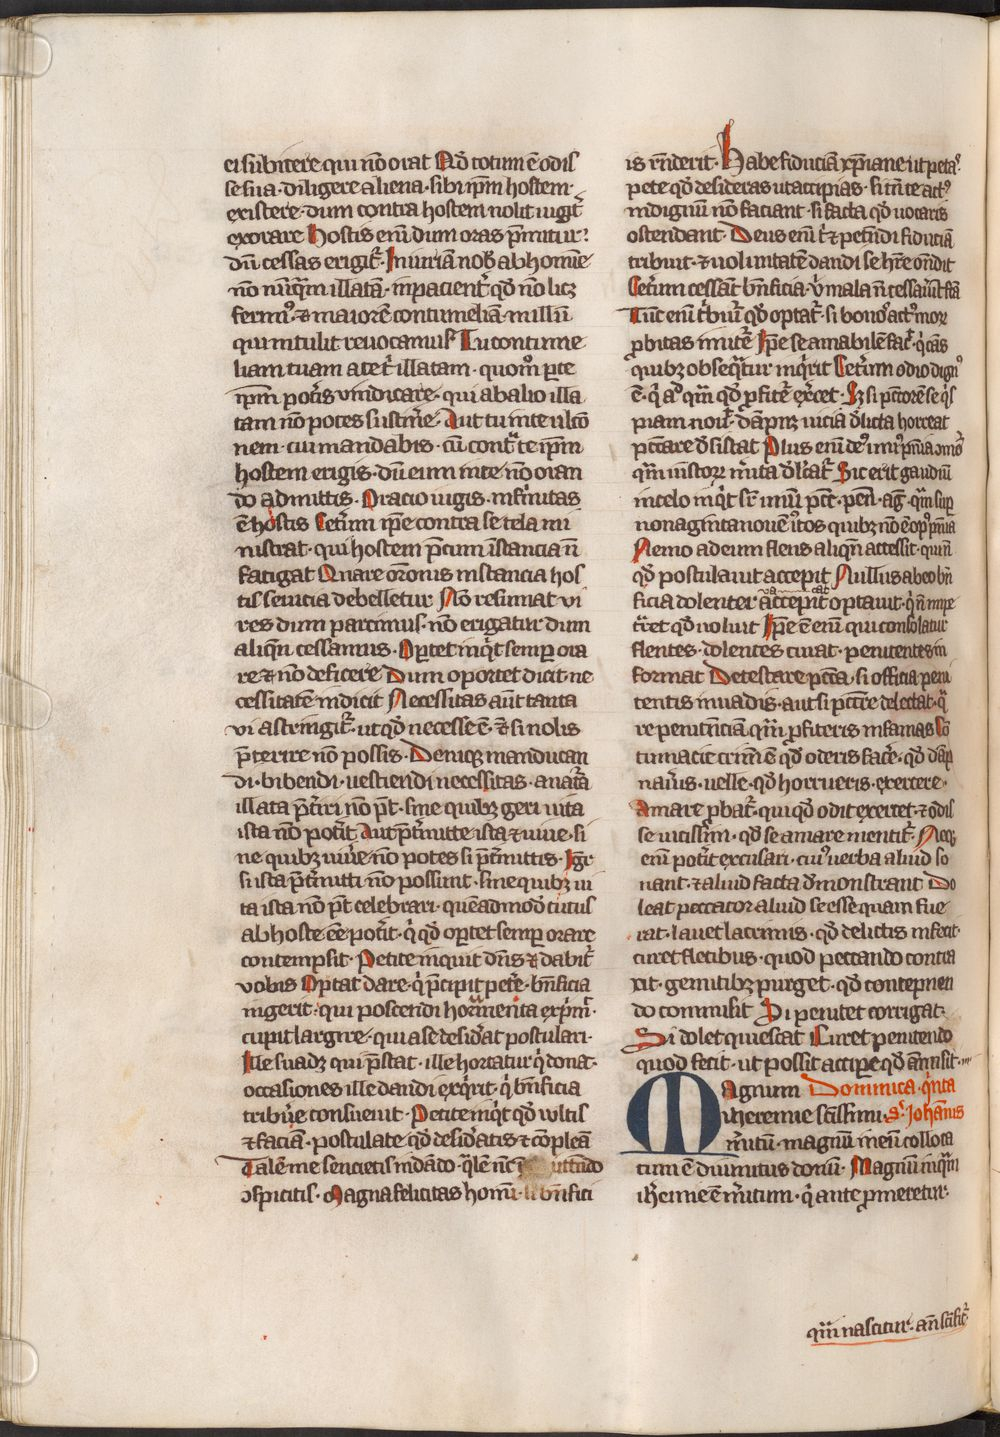 ei subicere qui nō orat Nō totum ē odis
se sua · diligere aliena · sibi ip̄m hostem ·
existere · dum contra hostem nolit iugit̄
exorare Hostis enī dum oras p̄mitur ·
dū cessas erigit̄ · Iniuriā nob̄ ab homīe
nō nūq̄m illatā · inpacient̄ qd̄ nō licz
ferimꝰ · ⁊ maiorē contumeliā · in illū
qui intulit revocamus Tu contume
liam tuam a te t̄ illatam · quomͦ p te
ip̄m pot̄is vindicare · qui ab alio illa
tam nō potes sustin̄e · Aut tu in te ulcō
nem · cui mandabis · cū cont̄ te ip̄m
hostem erigis · dū eum in te nō oran
do admittis · Oracio iugis · inf̄mitas
ē hostis Cet̄um ip̄e contra se tela mi
nistrat · qui hostem p̄cum īstancia n̄
fatigat Quare or̄onis instancia hos
tis sevicia debelletur Nō resumat vi
res dum parcimus · nō erigatur dum
aliq̄n cessamus · Oportet inq̄t semp ora
re ⁊ nō deficere Dum oportet dicit · ne
cessitatē indicit Necessitas aūt tanta
vi astringit̄ · ut qd̄ necesse ē · ⁊ si nolis
p̄terire nō possis · Denicꝫ manducan
di · bibendi · vestiendi necessitas · a nat̄a
illata p̄t̄iri nō p̄t · sine quibꝫ geri vita
ista nō pot̄it Aut p̄t̄mitte ista ⁊ vive · si
ne quibꝫ viv̄e nō potes si p̄t̄mittis · Ḡr
si ista p̄t̄mitti nō possunt · sine quibꝫ vi
ta ista nō p̄t celebrari · quēadmodū tutus
ab hoste ēē pot̄it · q̄ qd̄ oportet semp orare
contempsit · Petite inquit dn̄s ⁊ dabit̄
vobis Optat dare · q̄ p̄cipit pet̄e · bn̄ficia
ingerit · qui poscendi hortamenta exp̄mit̄ ·
cupit largire · qui a se desid̄at postulari ·
Ille suadꝫ qui p̄stat · ille hortatur q̄ donat ·
occasiones ille dandi exq̄rit · q̄ bn̄ficia
tribūe consuevit · Petite inq̄t qd̄ vultis
⁊ faciā · postulate qd̄ desid̄atis ⁊ cōpleā
Talē me sencietis in dādo · q̄lē nc̄
ↄspicitis · Magna felicitas homī · si bn̄fici
is r̄nderit · Habe fiduciā xp̄iane ut petaꝰ ·
pete qd̄ desideras ut accipias · si tn̄ te actꝰ
indignū nō faciant · si facta qd̄ vocaris
ostendant · Deus enī t̄ ⁊ petn̄di fiduciā
tribuit · ⁊ volūtatē dandi se h̄re on̄dit
Cet̄um cessāt bn̄ficia · ū mala n̄ cessav̄it fīa
Tūc enī t̄buit̄ qd̄ optat̄ · si bonoꝰ actꝰ mor
probitas imitet̄ Ip̄e se amabilē fac̄ · q̄ cās
quibꝫ obseq̄tur inq̄rit Cet̄um odio dignꝰ
ē · q̄ aͦ q̄m qd̄ profitet̄ exercet · Iꝫ si pctorē se q̄s
piam nov̄it · dāpnꝫ vicia d̄licta horreat
pccare d̄sistat Plus enī deꝰ
q̄m iustorꝫ mīta d̄lcat̄ Sic erit gaudiū
in celo inq̄t sr̄ unū pctr̄ · pen̄ · aḡ · q̄m sup
nonaginta novē ītos quibꝫ nō ē opꝰ pn̄ia
Nemo ad eum flens aliq̄n accessit · qui n̄
qd̄ postulavit accepit Nullus a beo bn̄
ficia dolenter accepit optavit · q̄ n̄ impe
t̄ret qd̄ voluit Ip̄e ē enī qui consolatur
flentes · dolentes curat · penitentes in
format Detestare pccā · si officia peni
tentis invadis · aut si pccare delectat · q̄
re penitēnciā · q̄m profiteris infamas Cō
tumacie crimē ē qd̄ oderis fac̄e · qd̄ dāp
nav̄is · velle · qd̄ horrueris · exercere ·
Amare probat̄ · qui qd̄ odit exercet · ⁊ odis
se vicissim̄ · qd̄ se amare mentit̄ · Necꝫ
enī pot̄it excusari · cuiꝰ verba aliud so
nant · ⁊ aliud facta d̄monstrant Do
leat peccator aliud se esse quam fue
rat · lavet lacrimis · qd̄ delictis infecit ·
curet fletibus · quod peccando contra
xit · gemitibus purget · qd̄ contepnen
do commisit Si penitet corrigat ·
Si dolet quiescat Curet penitendo
quod fecit · ut possit accipe qd̄ amisit ·
Magnum Dominica · q̄nta
iheremie sc̄issimi · S̄ Johānis
m̄itū · magnū mein̄ colloca
tum ē divinitus donū · Magnū inq̄m
ih̄remie ē m̄itum · q̄ ante promeretur ·
q̄m nascitur · an̄ sc̄ificat̄